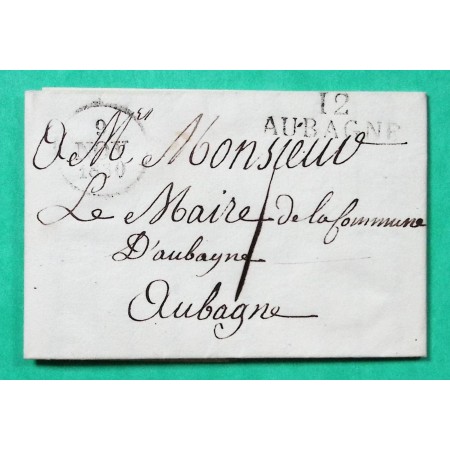 12
AUBAGNE
9
NOV
1830
A Mr Monsieur
Le Maire de la Commune
D'aubagne
Aubagne
1